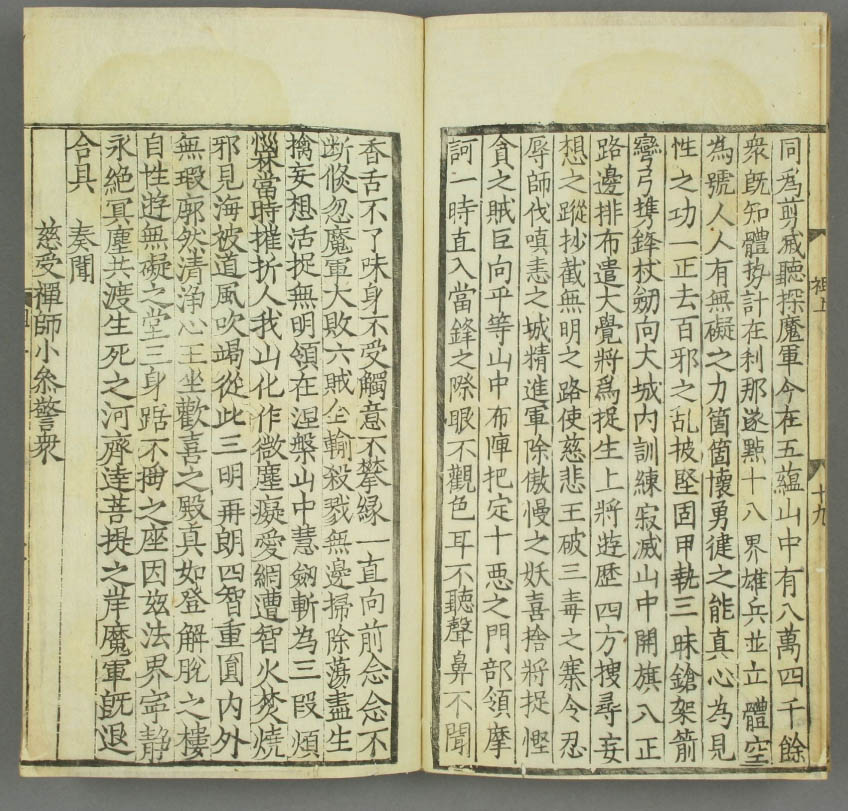 同爲剪滅聽探魔軍今在五蘊山中有八萬四千餘
衆旣知體勢計在刹那遂㸃十八界雄兵並立體空
為號人人有無礙之力箇箇懷勇健之能真心為見
性之功一正去百邪之乱披堅固甲執三昧鎗架箭
彎弓擕鋒杖劒向大城内訓練寂滅山中開旗八正
路邊排布遣大覺將爲捉生上將遊歷四方搜尋妄
想之蹤抄截無明之路使慈悲王破三毒之寨令忍
辱師伐嗔恚之城精進軍除傲慢之妖喜捨將捉慳
貪之賊臣向平等山中布陣把定十惡之門部領摩
訶一時直入當鋒之際眼不觀色耳不聽聲鼻不聞
十九
香舌不了味身不受觸意不攀緣一直向前念念不
断倐忽魔軍大敗六賊全輸殺戮無邊掃除蕩盡生
擒妄想活捉無明領在涅槃山中慧劒斬為三段煩
惱林當時摧折人我山化作微塵癡愛網遭智火焚燒
邪見海被道風吹竭從此三明再朗四智重圓内外
無瑕廓然清淨心王坐歡喜之殿真如登解脫之樓
自性遊無礙之堂三身踞不掬之座因兹法界寧静
永絶冥塵共渡生死之河齊達菩提之岸魔軍旣退
合具 奏聞
慈受禪師小叅警衆